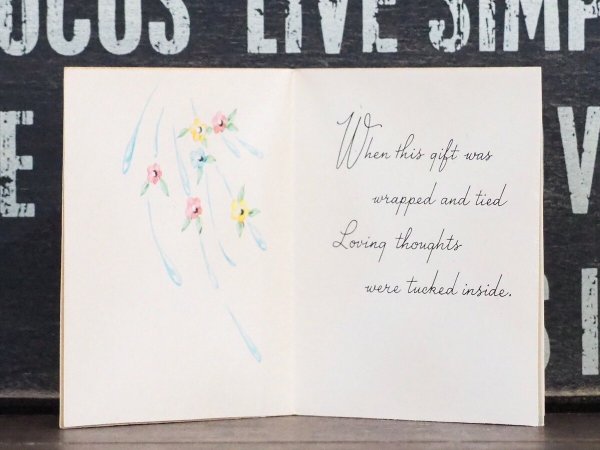 OCUS LIVE SIMP
When this gift was
wrapped and tied
Loving thoughts
were tucked inside.